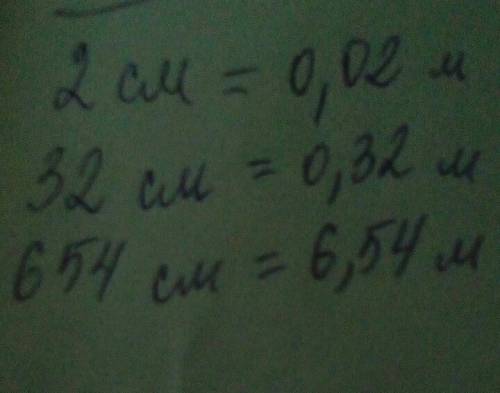 2 см = 0,02 м
32 см = 0,32 м
654 см = 6,54 м